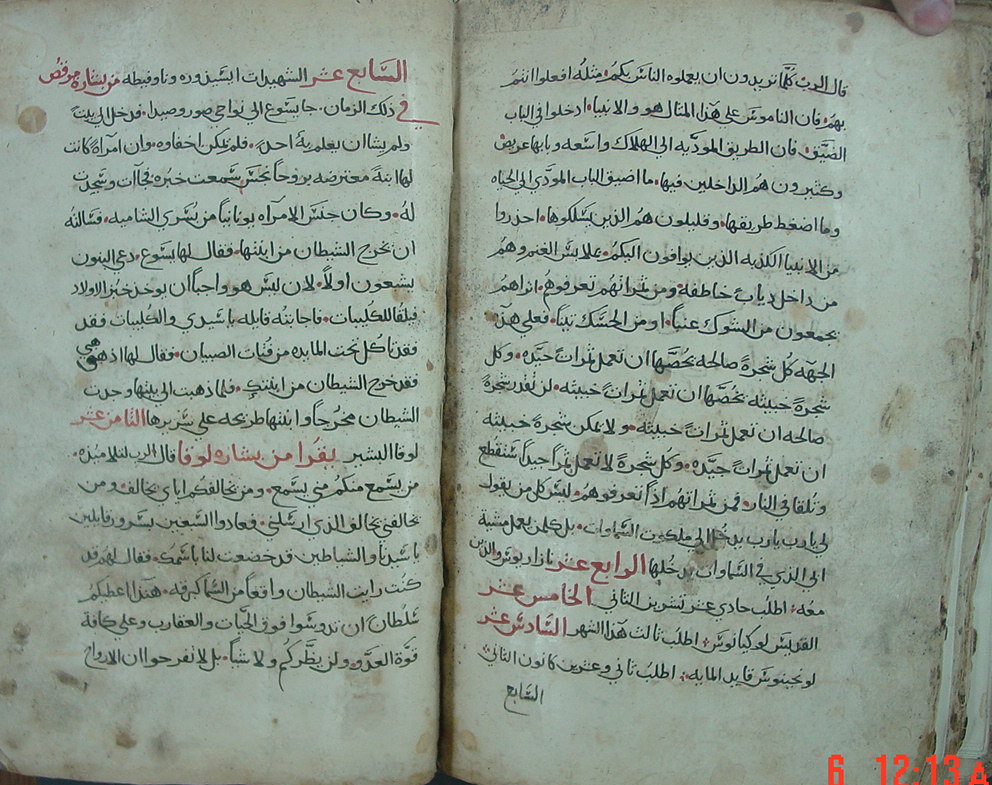 قال الرب كلما تريدون ان يعملوه الناس بكم مثله افعلوا انتم
بهم فان الناموس علي هذا المثال هو والانبيا ادخلوا في الباب
الضيق فان الطريق الموديه الي الهلاك واسعه وبابها عريض
وكثيرون هم الداخلين فيها ما اضيق الباب المودي الي الحياه
وما اضغط طريقها وقليلون هم الذين يسلكوها احدروا
من الانبيا الكذبه الذين يوافون اليكم بملابس الغنم وهم
من داخل دياب خاطفه ومن ثمراتهم تعرفوهم اتراهم
يجمعون من الشوك عنبا او من الحسك تينا فعلي هذه
الجهه كل شجرة صالحه يخصها ان تعمل ثمرات جيده وكل
شجرة خبيثه يخصها ان تعمل ثمرات خبيثه لن تقدر شجرة
صالحه ان تعمل ثمرات خبيثه ولا يمكن شجرة خبيثه
ان تعمل ثمرات جيده وكل شجرة لا تعمل ثمرا جيدا ستقطع
وتلقا في النار فمن ثمراتهم اذا تعرفوهم ليس كل من يقول
لي يارب يارب يدخل الي ملكوت السماوات بل كلمن يعمل مشية
ابي الذي في السماوات يدخلها الرابع عشر نازاريوس والذين
معه اطلب حادي عشر تشرين الثاني الخامس عشر
القديس لوكيانوس اطلب ثالث هذا الشهر السادس عشر
لونجينوس قايد المايه اطلب ثاني وعشرين كانون الثاني
السابع
السابع عشر الشهيدات انسيذوره وناوفيطه من بشاره مرقص
في ذلك الزمان جا يسوع الي نواحي صور وصيدا فدخل الي بيت
ولم يشا ان يعلم به احد فلم يمكن اخفاوه وان امرأة كانت
لها ابنة معترضه بروحا نجس سمعت خبره فجاات وسجدت
له وكان جنس الامرأه يونانيا من يسري الشاميه فسالته
ان يخرج الشيطان من ابنتها فقال لها يسوع دعي البنون
يشبعون اولا لان ليس هو واجبا ان يوخد خبز الاولاد
فيلقا للكليبات فاجابته قايله يا سيدي والكليبات فقد
فقد تاكل تحت المايده من فتات الصبيان فقال لها اذهبي
فقد خرج الشيطان من ابنتك فلما ذهبت الي بيتها وجدت
الشيطان مخرجا وابنتها طريحه علي سريرها الثامن عشر
لوقا البشير يقرا من بشاره لوقا قال الرب لتلاميذه
من يسمع منكم مني يسمع ومن يخالفكم اياي يخالف ومن
يخالفني يخالف الذي ارسلني فعادوا السبعين بسرور قايلين
يا سيدنا والشياطين قد خضعت لنا باسمك فقال لهم قد
كنت رايت الشيطان واقعا من السما كبرقه هنذا اعطيكم
سلطان ان تدوسوا فوق الحيات والعقارب وعلي كافة
قوة العدو ولن يظركم ولا شيا بل لا تفرحوا ان الارواح